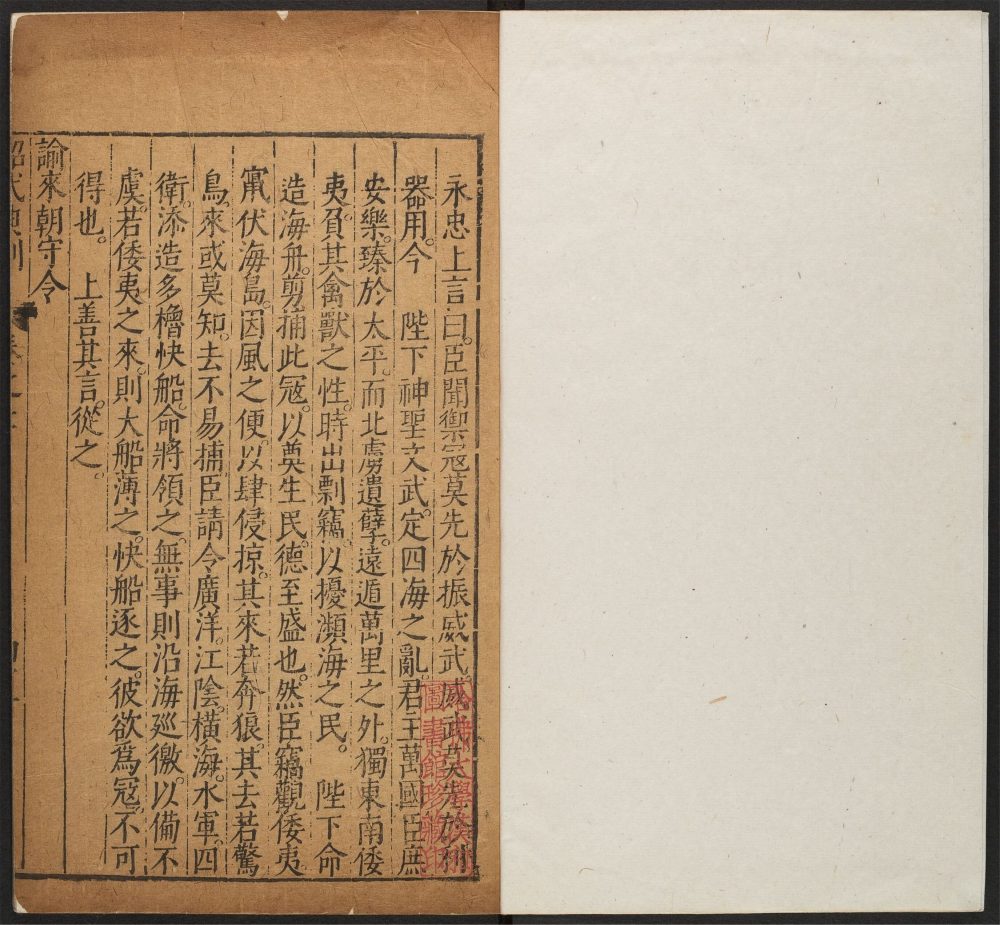 永忠上言曰。臣聞禦寇莫先於振威武。威武莫先於利
器用。今　陛下神聖文武。定四海之亂。君主萬國。臣庶
安樂。臻於太平。而北虜遺孽。遠遁萬里之外。獨東南倭
夷。負其禽獸之性。時出剽竊。以擾瀕海之民。　陛下命
造海舟。剪捕此寇。以奠生民。德至盛也。然臣竊觀倭夷
竄伏海島。因風之便。以肆侵掠。其來若奔狼。其去若驚
鳥。來或莫知。去不易捕。臣請令廣洋。江陰。橫海。水軍。四
衛。添造多櫓快船。命將領之。無事則沿海廵徼。以備不
虞。若倭夷之來。則大船薄之。快船逐之。彼欲爲寇。不可
得也。　上善其言。從之。
諭來朝守令
昭代典則
圖書館珍藏印